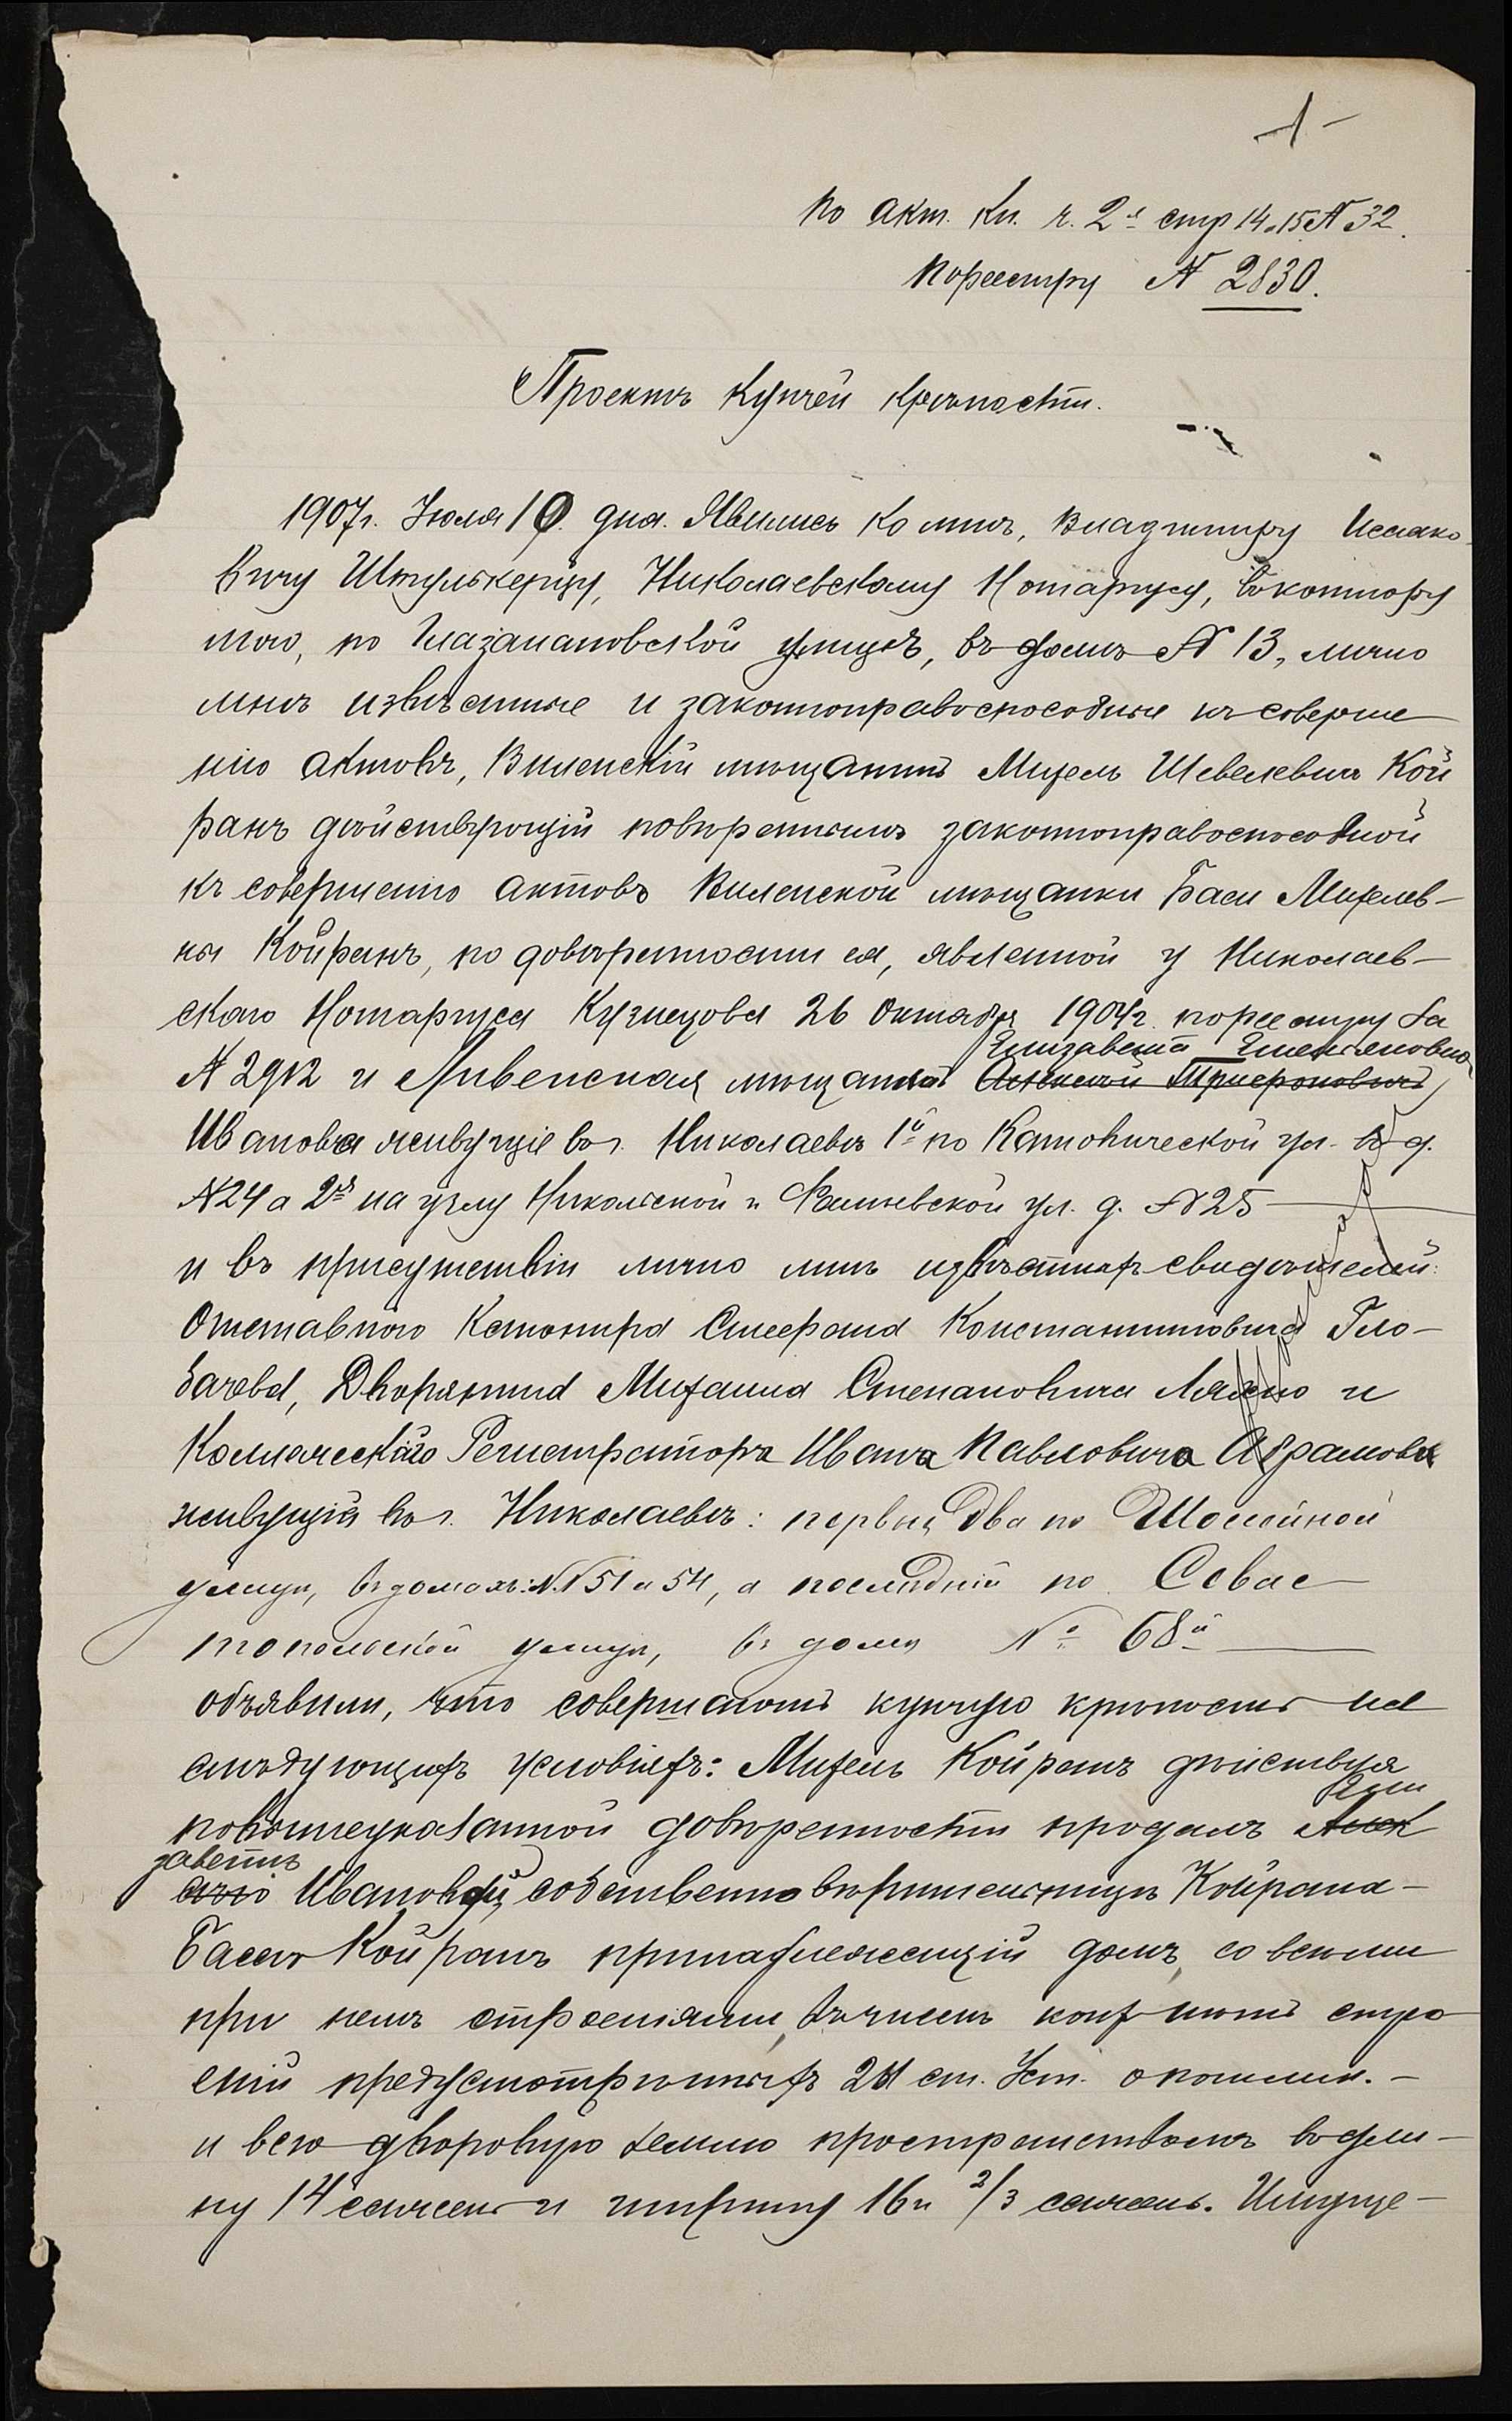 1
по акт. кн. ч. 2я стр 14-15 № 32.
по реестру № 2830.
Проектъ купчей крѣпости.
1907г. Іюля 10 дня. Явились ко мнѣ, Владиміру Исаако-
вичу Штулькерцу, Николаевскому Нотаріусу, въ контору
мою, по Глазенаповской улицѣ, въ домѣ № 13, лично
мнѣ извѣстные и законноправоспособные къ соверше
нію актовъ, Виленскій мѣщанинъ Михель Шевелевичъ Кой
ранъ дѣйствующій повѣреннымъ законноправоспособной
къ совершенію актовъ Виленской мѣщанки Баси Михелев-
ны Койранъ, по довѣренности ея, явленной у Николаев-
скаго Нотаріуса Кузнецова 26 Октября 1904г. по реестру за
Елизавета Емельяновна
№ 2912 и Ливенская мѣщанка Алексѣй Трифоновичъ
Иванова живущіе въ г. Николаевѣ 1й по Католической ул. въ д.
№24 а 2я на углу Никольской и Фалѣевской ул. д. №25
и въ присутствіи лично мнѣ извѣстныхъ свидѣтелей:
Отставного Капитана Стефана Константиновича Гло-
бачева, Дворянина Михаила Степановича и
Коллежскаго Регистратора Ивана Павловича Абрамова
живущій въ г. Николаевѣ: первый два по Шоссейной
улицѣ, въ домахъ: №№ 51 и 54, а послѣдній по Севас
топольской улицѣ, въ домѣ № 68й
объявили, что совершаютъ купчую крѣпость на
слѣдующихъ условіяхъ: Михель Койранъ дѣйствуя
Ели
по вышеуказанной довѣренности продалъ Алек
заветѣ
сѣю Ивановой, собственно вѣрительницѣ Койрана -
Басѣ Койранъ принадлежащій домъ, со всѣми
при немъ строеніями, въ числѣ коихъ нѣтъ стро
еній предусмотрѣнныхъ ст. Уст. о пошлин. -
и всю дворовую землю пространствомъ въ дли-
ну 14 сажень и ширину 16 и 2/3 сажень. Имуще-